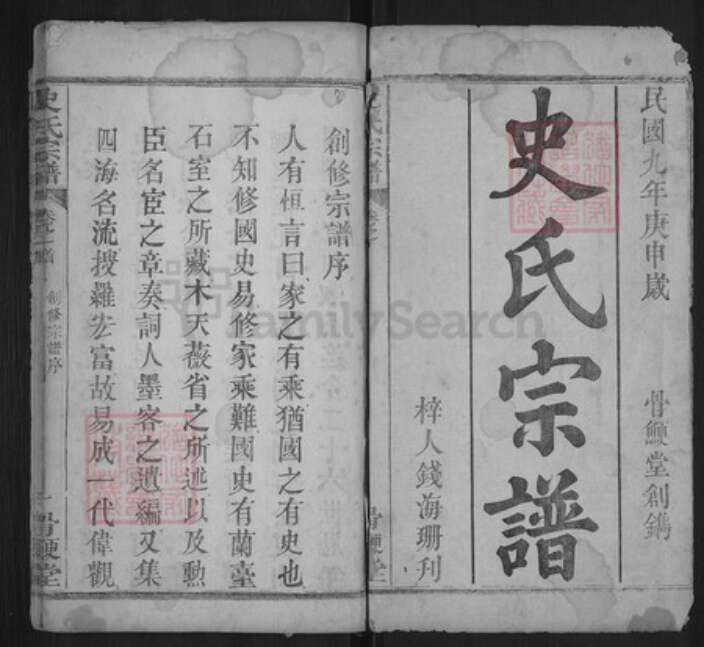 民國九年庚申歲
骨鯁堂創鐫
史氏宗譜
梓人錢海珊刋
史氏宗譜
骨鯁堂
創修宗譜序
人有恒言曰家之有乘猶國之有史也
不知修國史易修家乘難國史有蘭臺
石室之所藏木天薇省之所述以及勳
臣名宦之章奏詞人墨客之遺編又集
四海名流搜羅宏富故易成一代偉觀
史氏宗譜
卷一首
創修宗譜序
一
骨鯁堂
FamilySearch